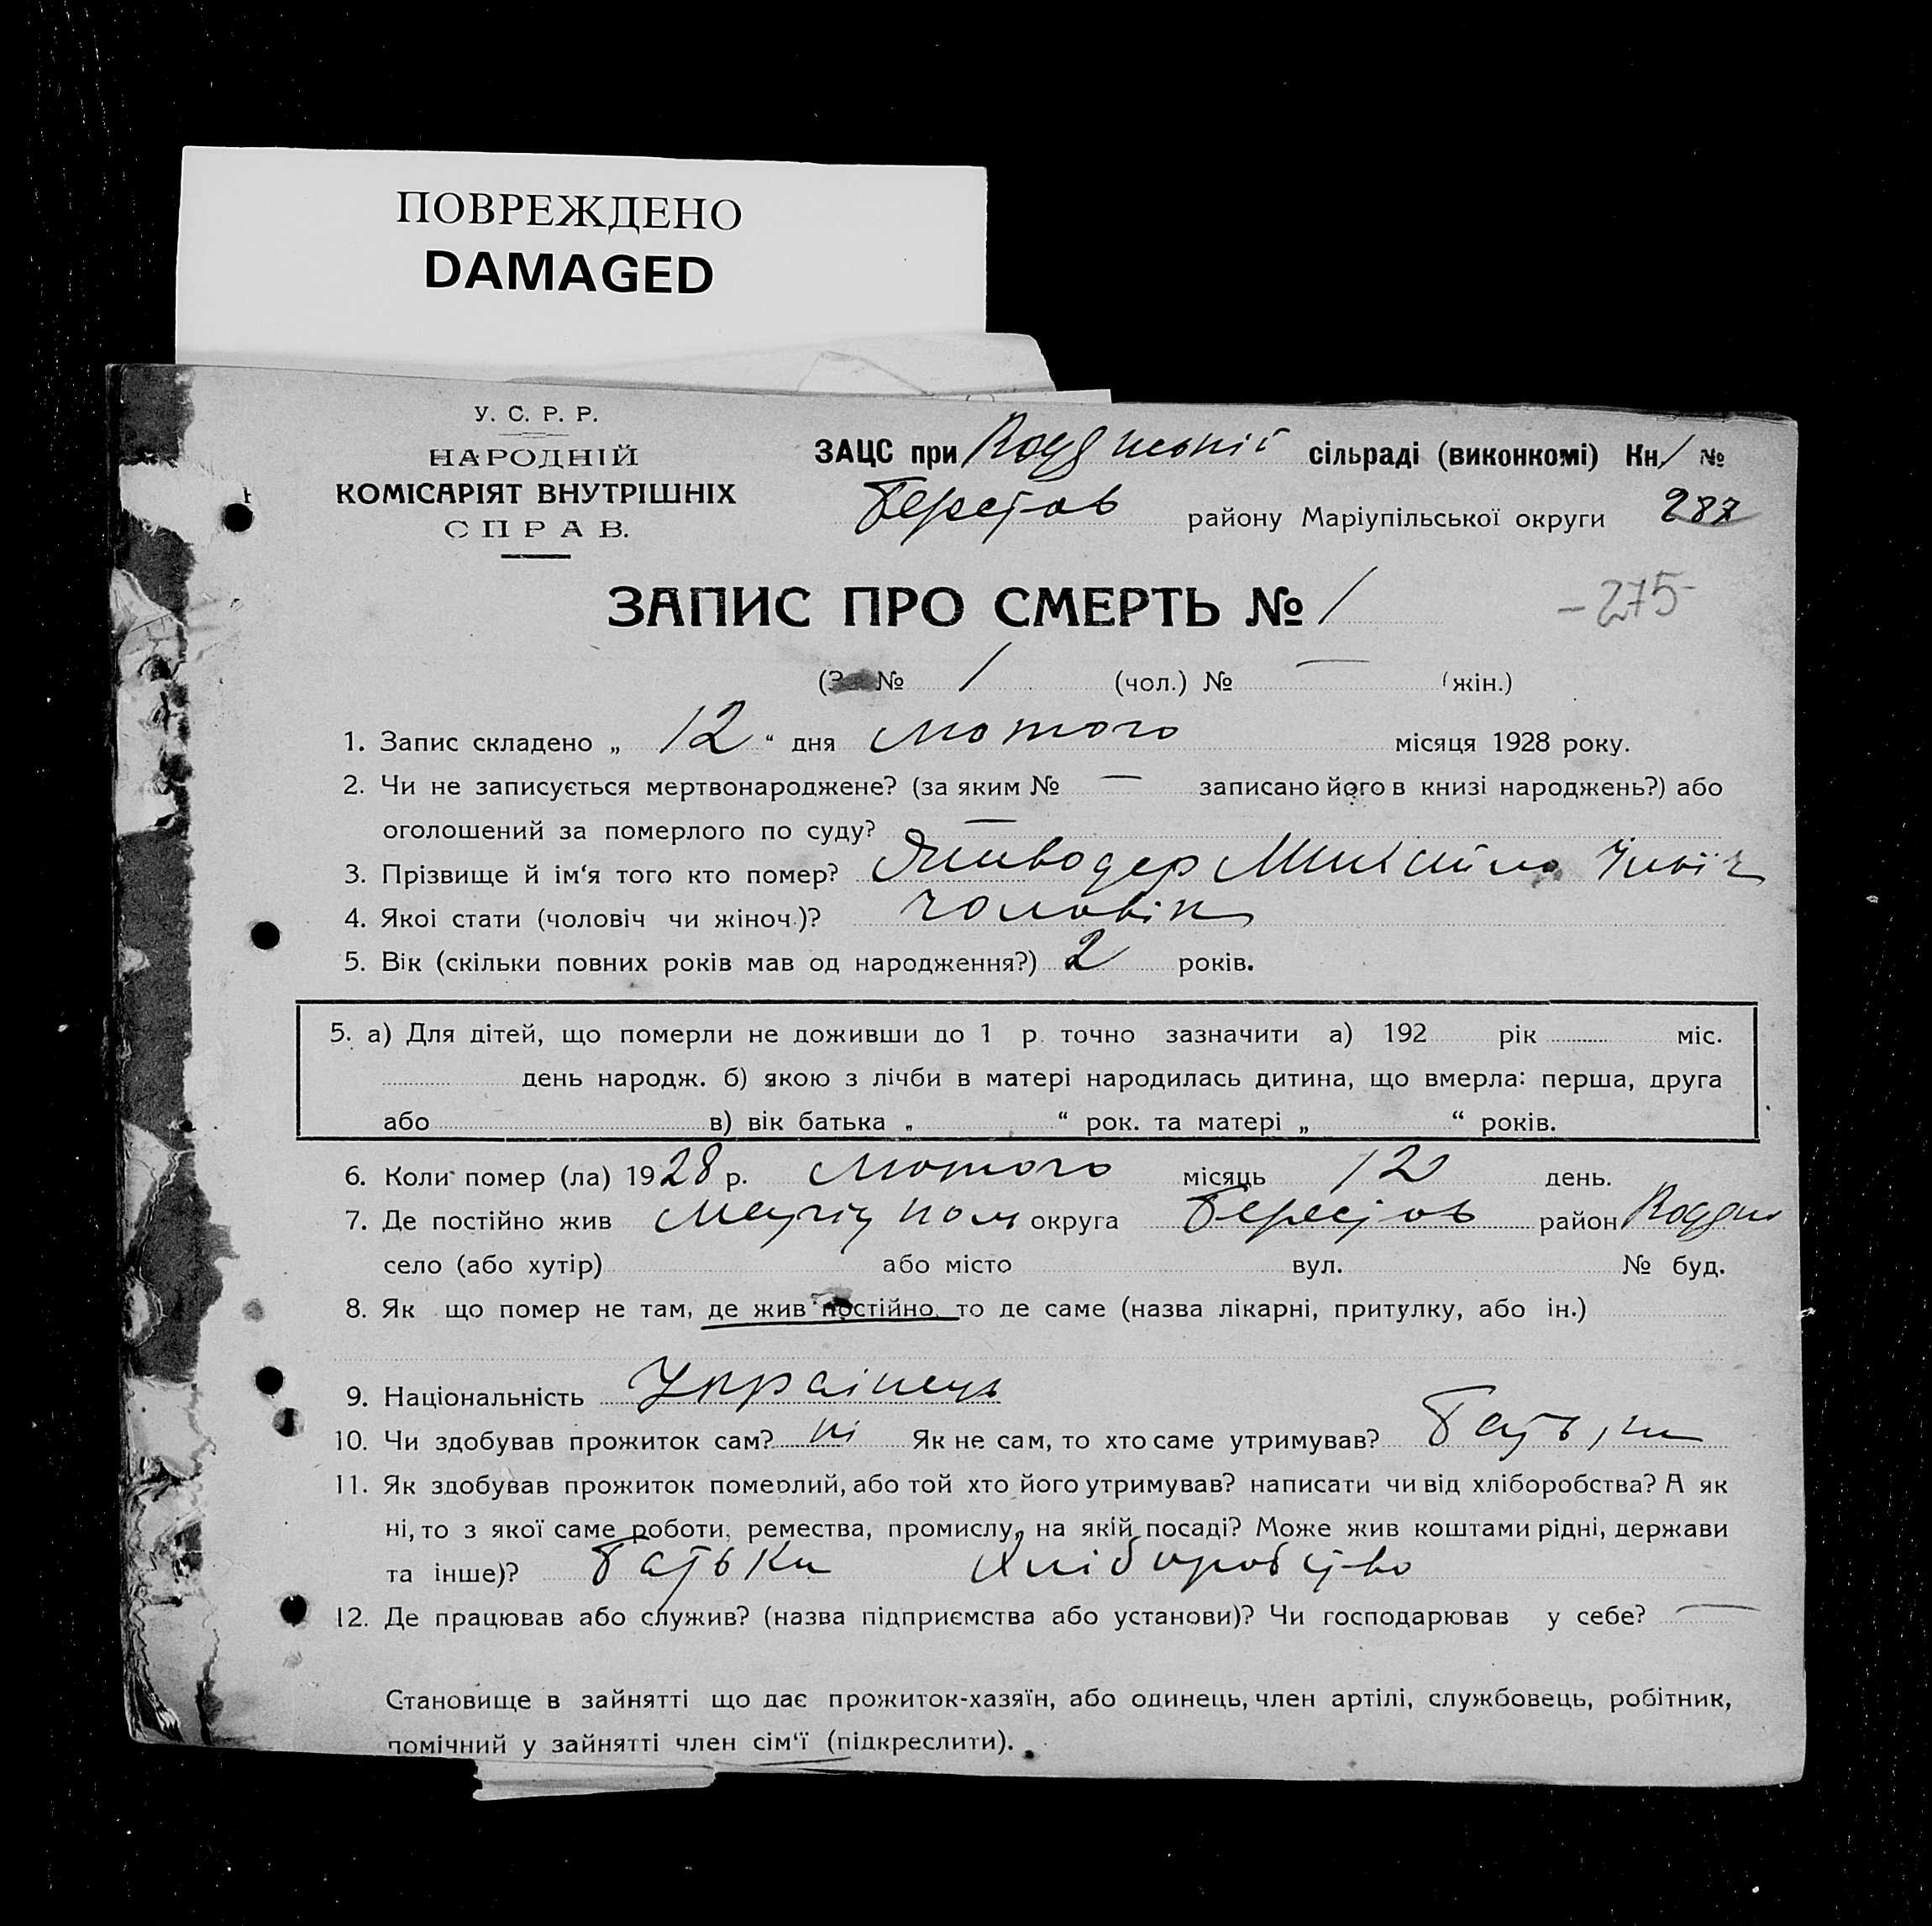 ПОВРЕЖДЕНО
DAMAGED
У. С. Р. Р.
НАРОДНІЙ
КОМІСАРІЯТ ВНУТРІШНІХ
СПРАВ.
ЗАЦС при сільраді (виконкомі) Кн. 1 №
Берестов району Маріупільської округи 287
ЗАПИС ПРО СМЕРТЬ № 1
-275-
№ 1 (чол.) № — (жін.)
1. Запис складено „ 12 “ дня лютого місяця 1928 року.
2. Чи не записується мертвонароджене? (за яким № — записано його в книзі народжень?) або
оголошений за померлого по суду? —
3. Прізвище й ім‘я того кто помер? Михайло
4. Якоі стати (чоловіч чи жіноч.)? чоловік
5. Вік (скільки повних років мав од народження?) 2 років.
5. а) Для дітей, що померли не доживши до 1 р. точно зазначити а) 192 рік міс.
день народж. б) якою з лічби в матері народилась дитина, що вмерла: перша, друга
або в) вік батька „ “ рок. та матері „ “ років.
6. Коли помер (ла) 1928 р. лютого місяць 12 день.
7. Де постійно жив округа Берестов район
село (або хутір) або місто вул. № буд.
8. Як що помер не там, де жив постійно, то де саме (назва лікарні, притулку, або ін.)
9. Національність Українець
10. Чи здобував прожиток сам? ні Як не сам, то хто саме утримував? Батьки
11. Як здобував прожиток померлий, або той хто його утримував? написати чи від хліборобства? А як
ні, то з якої саме роботи, ремества, промислу, на якій посаді? Може жив коштами рідні, держави
та інше)? батьки хліборобство
12. Де працював або служив? (назва підприємства або установи)? Чи господарював у себе? —
Становище в зайнятті що дає прожиток-хазяїн, або одинець, член артілі, службовець, робітник,
помічний у зайнятті член сім‘ї (підкреслити).